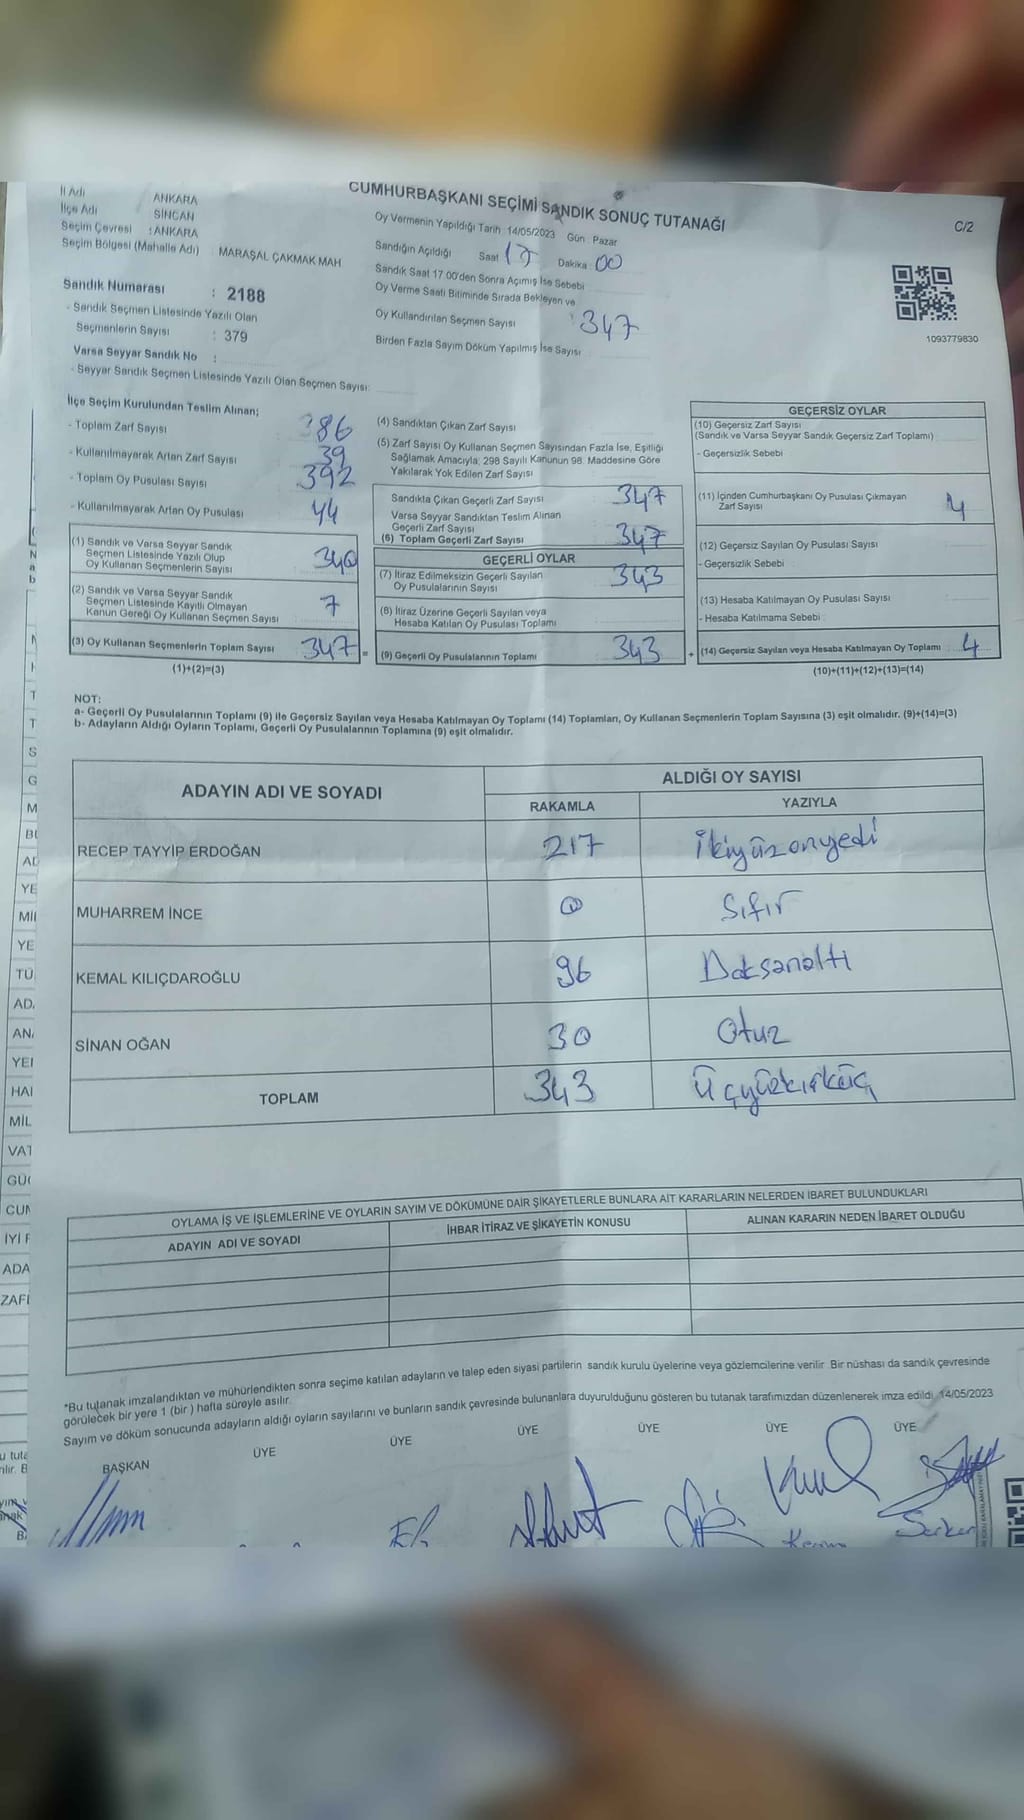 CUMHURBAŞKANI SEÇİMİ SANDIK SONUÇ TUTANAĞI
C/2
İl Adı ANKARA
İlçe Adı SİNCAN
Seçim Çevresi : ANKARA
Seçim Bölgesi (Mahalle Adı) : MARAŞAL ÇAKMAK MAH
Sandık Numarası : 2188
- Sandık Seçmen Listesinde Yazılı Olan
Seçmenlerin Sayısı : 379
Varsa Seyyar Sandık No :
- Seyyar Sandık Seçmen Listesinde Yazılı Olan Seçmen Sayısı:
Oy Vermenin Yapıldığı Tarih 14/05/2023 Gün Pazar
Sandığın Açıldığı Saat 17 Dakika 00
Sandık Saat 17 00'den Sonra Açımış İse Sebebi
Oy Verme Saati Bitiminde Sırada Bekleyen ve
Oy Kullandırılan Seçmen Sayısı : 347
Birden Fazla Sayım Döküm Yapılmış İse Sayısı
1093779830
İlçe Seçim Kurulundan Teslim Alınan;
- Toplam Zarf Sayısı 386
- Kullanılmayarak Artan Zarf Sayısı 39
- Toplam Oy Pusulası Sayısı 392
- Kullanılmayarak Artan Oy Pusulası 44
(1) Sandık ve Varsa Seyyar Sandık
Seçmen Listesinde Yazılı Olup
Oy Kullanan Seçmenlerin Sayısı 340
(2) Sandık ve Varsa Seyyar Sandık
Seçmen Listesinde Kayıtlı Olmayan
Kanun Gereği Oy Kullanan Seçmen Sayısı 7
(3) Oy Kullanan Seçmenlerin Toplam Sayısı 347
(1)+(2)=(3)
(4) Sandıktan Çıkan Zarf Sayısı
(5) Zarf Sayısı Oy Kullanan Seçmen Sayısından Fazla İse, Eşitliği
Sağlamak Amacıyla, 298 Sayılı Kanunun 98. Maddesine Göre
Yakılarak Yok Edilen Zarf Sayısı
Sandıkta Çıkan Geçerli Zarf Sayısı 347
Varsa Seyyar Sandıktan Teslim Alınan
Geçerli Zarf Sayısı
(6) Toplam Geçerli Zarf Sayısı 347
GEÇERLİ OYLAR
(7) İtiraz Edilmeksizin Geçerli Sayılan
Oy Pusulalarının Sayısı 343
(8) İtiraz Üzerine Geçerli Sayılan veya
Hesaba Katılan Oy Pusulası Toplamı
= (9) Geçerli Oy Pusulalarının Toplamı 343
GEÇERSİZ OYLAR
(10) Geçersiz Zarf Sayısı
(Sandık ve Varsa Seyyar Sandık Geçersiz Zarf Toplamı)
- Geçersizlik Sebebi
(11) İçinden Cumhurbaşkanı Oy Pusulası Çıkmayan
Zarf Sayısı 4
(12) Geçersiz Sayılan Oy Pusulası Sayısı
- Geçersizlik Sebebi
(13) Hesaba Katılmayan Oy Pusulası Sayısı
- Hesaba Katılmama Sebebi
+ (14) Geçersiz Sayılan veya Hesaba Katılmayan Oy Toplamı 4
(10)+(11)+(12)+(13)=(14)
NOT:
a- Geçerli Oy Pusulalarının Toplamı (9) ile Geçersiz Sayılan veya Hesaba Katılmayan Oy Toplamı (14) Toplamları, Oy Kullanan Seçmenlerin Toplam Sayısına (3) eşit olmalıdır. (9)+(14)=(3)
b- Adayların Aldığı Oyların Toplamı, Geçerli Oy Pusulalarının Toplamına (9) eşit olmalıdır.
ADAYIN ADI VE SOYADI ALDIĞI OY SAYISI
RAKAMLA YAZIYLA
RECEP TAYYİP ERDOĞAN 217 ikiyüzonyedi
MUHARREM İNCE 0 Sıfır
KEMAL KILIÇDAROĞLU 96 Doksanaltı
SİNAN OĞAN 30 Otuz
TOPLAM 343 Üçyüzkırküç
OYLAMA İŞ VE İŞLEMLERİNE VE OYLARIN SAYIM VE DÖKÜMÜNE DAİR ŞİKAYETLERLE BUNLARA AİT KARARLARIN NELERDEN İBARET BULUNDUKLARI
ADAYIN ADI VE SOYADI İHBAR İTİRAZ VE ŞİKAYETİN KONUSU ALINAN KARARIN NEDEN İBARET OLDUĞU
*Bu tutanak imzalandıktan ve mühürlendikten sonra seçime katılan adayların ve talep eden siyasi partilerin sandık kurulu üyelerine veya gözlemcilerine verilir Bir nüshası da sandık çevresinde
görülecek bir yere 1 (bir ) hafta süreyle asılır.
Sayım ve döküm sonucunda adayların aldığı oyların sayılarını ve bunların sandık çevresinde bulunanlara duyurulduğunu gösteren bu tutanak tarafımızdan düzenlenerek imza edildi. 14/05/2023
BAŞKAN ÜYE ÜYE ÜYE ÜYE ÜYE ÜYE
Serkan